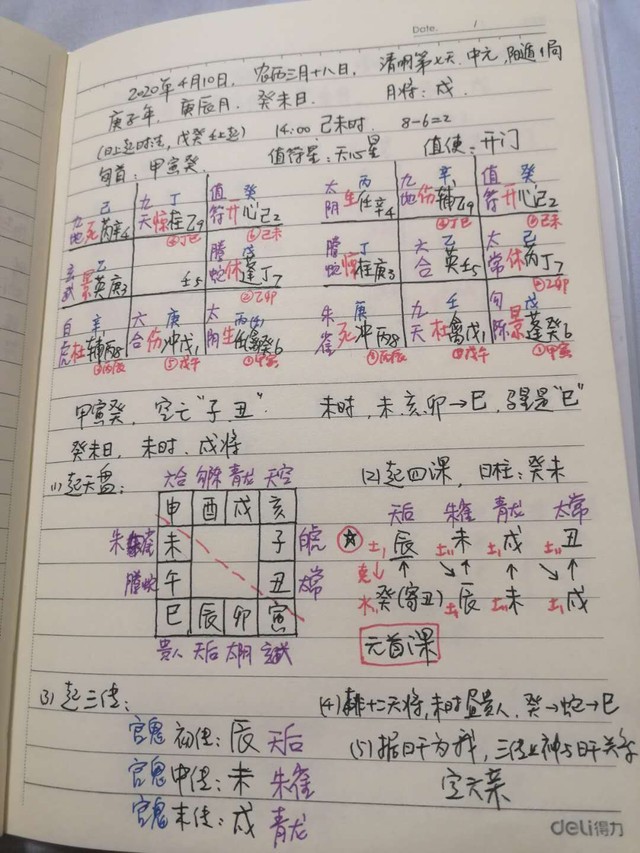 Date. 1
2020年4月10日, 农历三月十八日, 清明第七天. 中元, 阳遁1局
庚子年, 庚辰月, 癸未日. 月将: 戌
(日上起时法, 戊癸壬上起) 14:00 己未时. 8-6=2
旬首: 甲寅癸. 值符星: 天心星 值使: 开门
九地 己 死 丙 九天 丁 惊柱乙9 值符 癸 开心己2 太阴 丙 生任辛4 九地 辛 伤辅乙9 值符 癸 开心己2
④丁巳 ⑥己未 ④丁巳 ⑥己未
玄武 乙 景英庚3 壬5 螣蛇 戊 休蓬丁7 螣蛇 丁 惊柱庚3 六合 乙 英壬5 太常 己 休丙丁7
②乙卯 ②乙卯
白虎 辛 杜辅丙8 六合 庚 伤冲戊1 太阴 丙 生任癸6 朱雀 庚 死冲丙8 九天 壬 杜禽戊1 勾陈 戊 景蓬癸6
③丙辰 ⑤戊午 ①甲寅 ③丙辰 ⑤戊午 ①甲寅
甲寅癸, 空亡“子丑”. 未时, 未.亥.卯→巳, 马星是“巳”
癸未日. 未时. 戌将
(1)起天盘: 六合 勾陈 青龙 天空 (2)起四课, 日柱: 癸未
申 酉 戌 亥 天后 朱雀 青龙 太常
朱雀 未 子 白虎 土 辰 土 未 土 戌 土 丑
螣蛇 午 丑 太常 克↓ ↑ ↘↑ ↑ ↘↑
巳 辰 卯 寅 水 癸(寄丑) 土 辰 土 未 土 戌
贵人 天后 太阴 玄武 元首课
(3)起三传: (4)排十二天将, 未时昼贵人. 癸→蛇→巳
官鬼 初传: 辰 天后 (5)据日干为我, 三传上神与日干关系
官鬼 中传: 未 朱雀 定六亲
官鬼 末传: 戌 青龙
deli得力